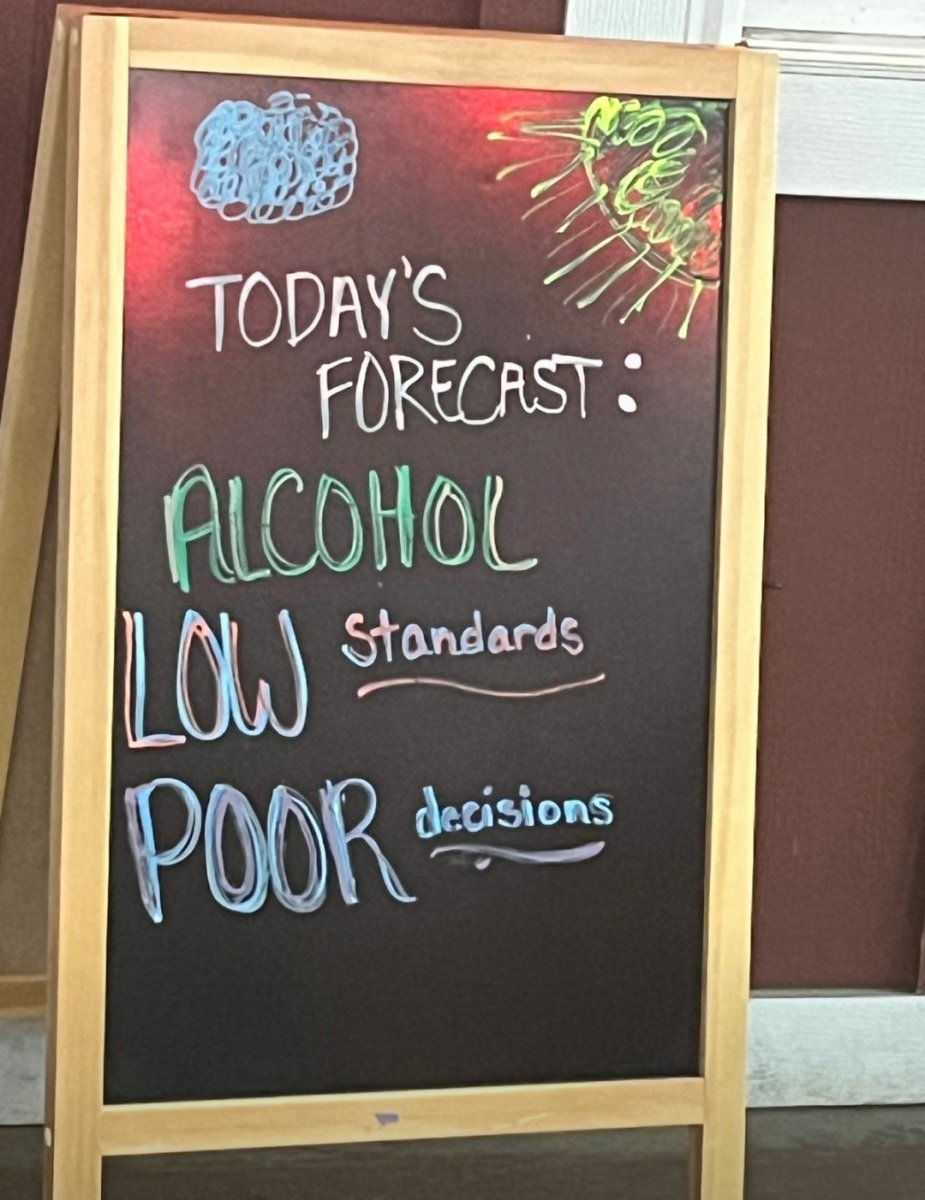 TODAY'S
FORECAST:
ALCOHOL
LOW standards
POOR decisions